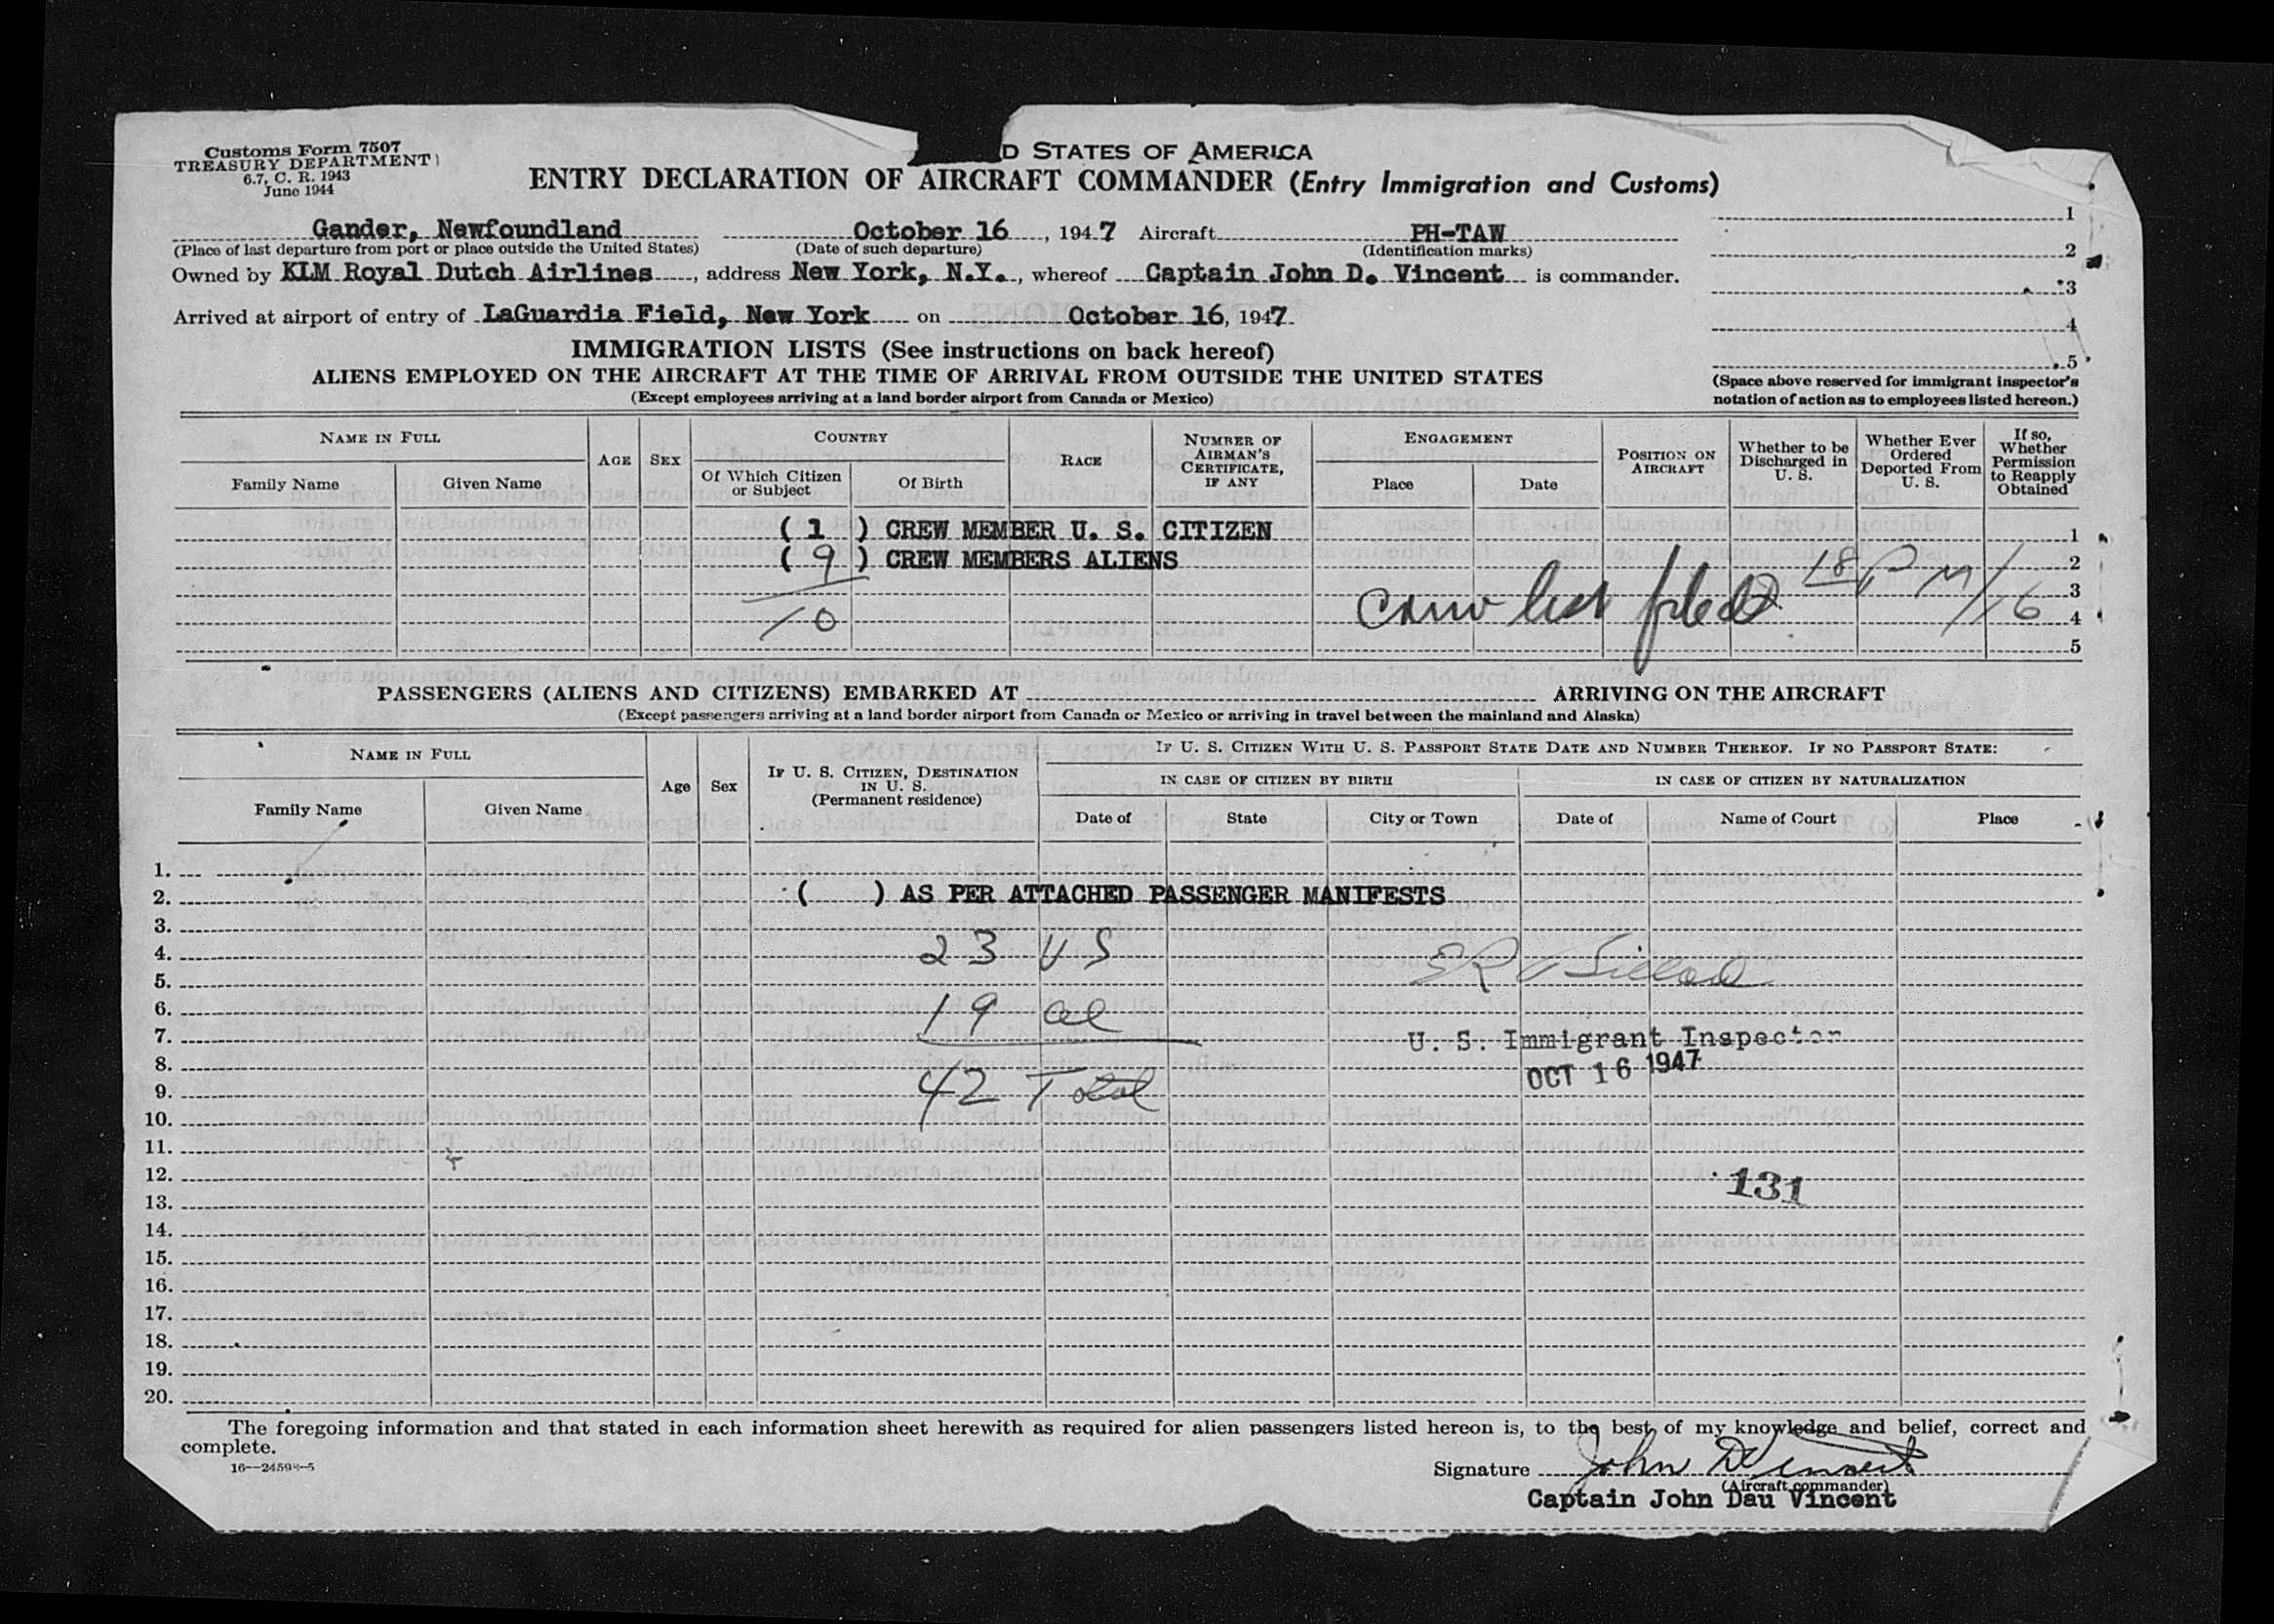 Customs Form 7507
TREASURY DEPARTMENT
6.7, C. R. 1943
June 1944
D STATES OF AMERICA
ENTRY DECLARATION OF AIRCRAFT COMMANDER (Entry Immigration and Customs)
Gander, Newfoundland October 16, 1947 Aircraft PH-TAW
(Place of last departure from port or place outside the United States) (Date of such departure) (Identification marks)
Owned by KLM Royal Dutch Airlines, address New York, N.Y., whereof Captain John D. Vincent is commander.
Arrived at airport of entry of LaGuardia Field, New York on October 16, 1947.
1
2
3
4
5
(Space above reserved for immigrant inspector's
notation of action as to employees listed hereon.)
IMMIGRATION LISTS (See instructions on back hereof)
ALIENS EMPLOYED ON THE AIRCRAFT AT THE TIME OF ARRIVAL FROM OUTSIDE THE UNITED STATES
(Except employees arriving at a land border airport from Canada or Mexico)
NAME IN FULL
Family Name Given Name
AGE SEX
COUNTRY
Of Which Citizen
or Subject
Of Birth
RACE
NUMBER OF
AIRMAN'S
CERTIFICATE,
IF ANY
ENGAGEMENT
Place Date
POSITION ON
AIRCRAFT
Whether to be
Discharged in
U. S.
Whether Ever
Ordered
Deported From
U. S.
If so,
Whether
Permission
to Reapply
Obtained
( 1 ) CREW MEMBER U. S. CITIZEN 1
( 9 ) CREW MEMBERS ALIENS 2
3
10 list filed 4
5
PASSENGERS (ALIENS AND CITIZENS) EMBARKED AT ARRIVING ON THE AIRCRAFT
(Except passengers arriving at a land border airport from Canada or Mexico or arriving in travel between the mainland and Alaska)
NAME IN FULL
Family Name Given Name
Age Sex
IF U. S. CITIZEN, DESTINATION
IN U. S.
(Permanent residence)
IF U. S. CITIZEN WITH U. S. PASSPORT STATE DATE AND NUMBER THEREOF. IF NO PASSPORT STATE:
IN CASE OF CITIZEN BY BIRTH IN CASE OF CITIZEN BY NATURALIZATION
Date of State City or Town Date of Name of Court Place
1.
2. ( ) AS PER ATTACHED PASSENGER MANIFESTS
3.
4. 23 US
5.
6. 19 al
7. U. S. Immigrant Inspector
8. OCT 16 1947
9. 42 Total
10.
11.
12. 131
13.
14.
15.
16.
17.
18.
19.
20.
The foregoing information and that stated in each information sheet herewith as required for alien passengers listed hereon is, to the best of my knowledge and belief, correct and
complete.
Signature John D Vincent
(Aircraft commander)
Captain John Dau Vincent